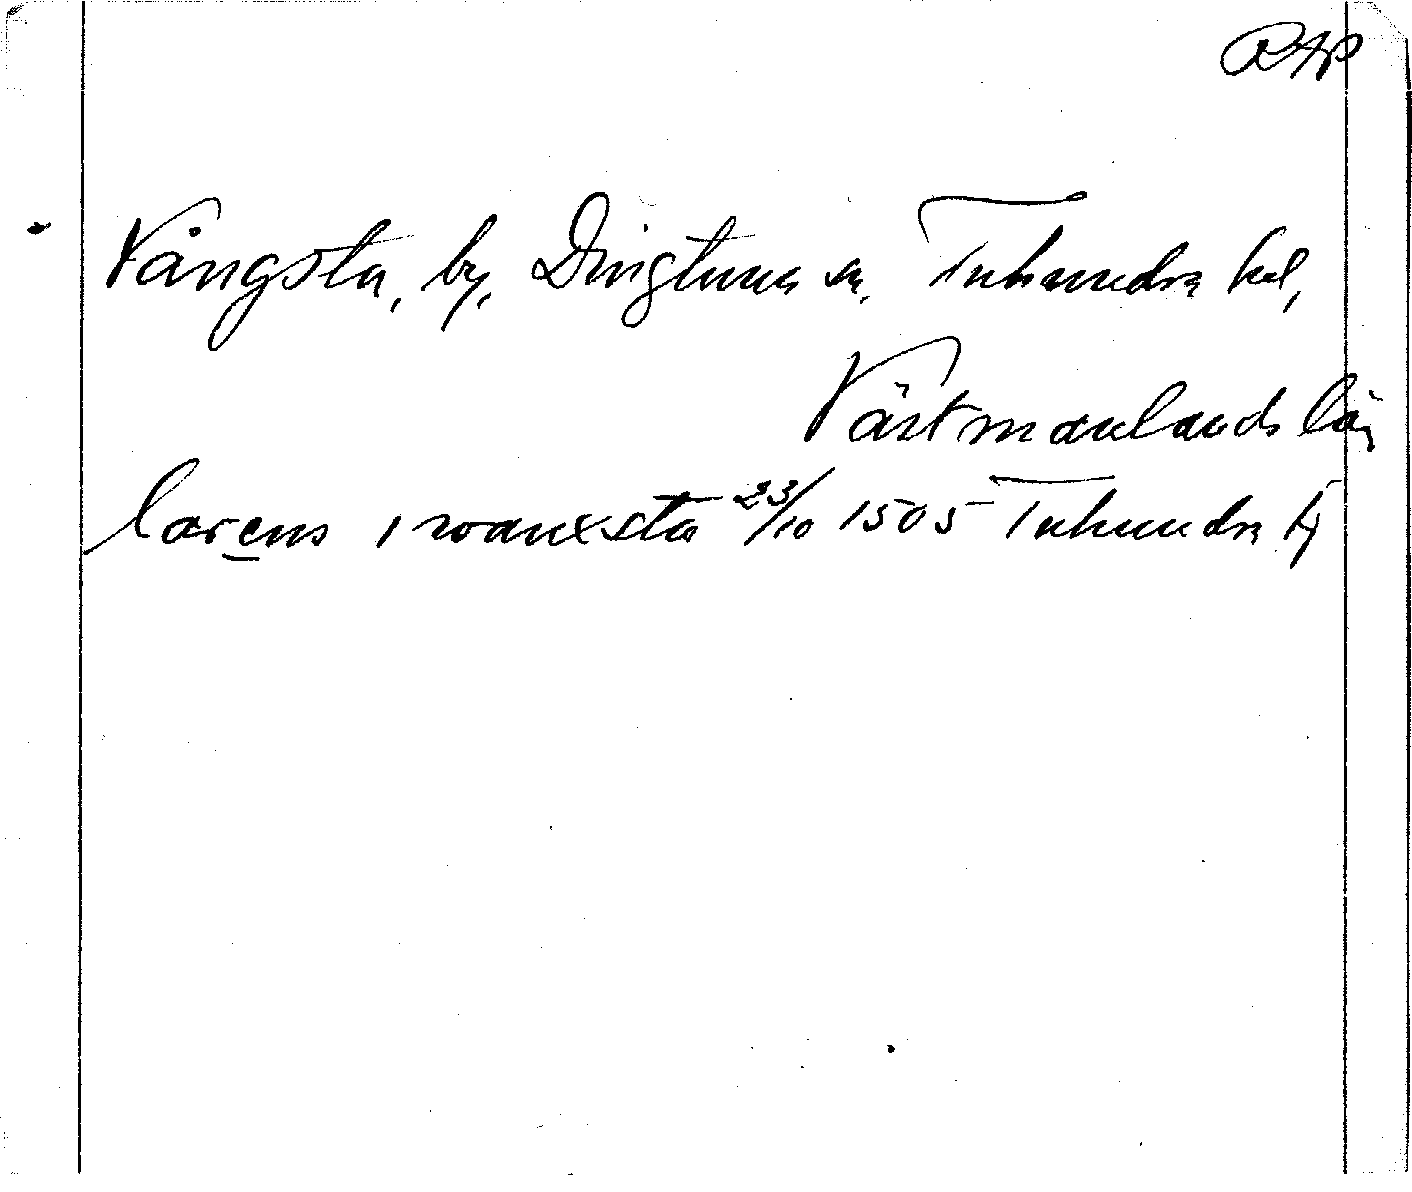 RAP
Vångsta, by, Dingtuna sn. Tuhundra hd,
Västmanlands län
larens i wanxsta 23/10 1505 Tuhundra